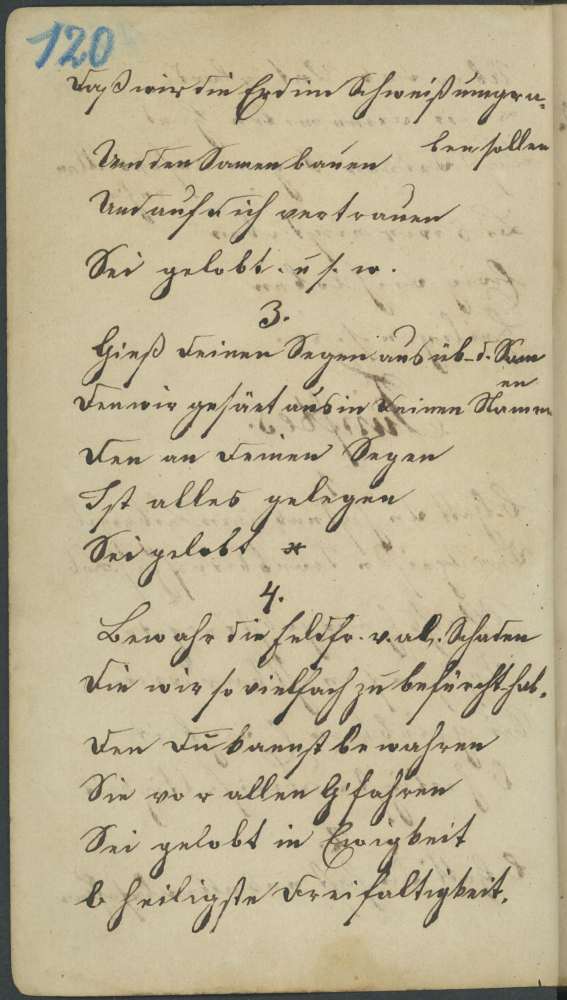 120
daß wir die Erd im Schweiß umgra-
ben sollen
Und den Samen bauen
Und auf dich vertrauen
Sei gelobt. u. s. w.
3.
Gieß deinen Segen aus üb. d. Sam
en
Den wir gesäet aus in deinen Namen
Den an deinen Segen
Ist alles gelegen
Sei gelobt *
4.
Bewahr die Feldfr. v. all. Schaden
Die wir so vielfach zu befürcht hab.
Den du kannst bewahren
Sie vor allen G'fahren
Sei gelobt in Ewigkeit
O heiligste Dreifaltigkeit.